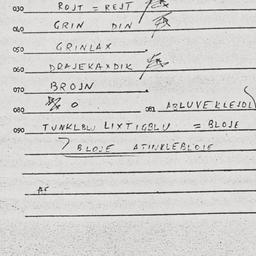 030 ROJT = REJT
040 GRIN DIN
050 GRINLAX
060 DRAJEKAXDIK
070 BROJN
080 081 AZLUVEKLEJDL
090 TUNKLBLU LIXTIGBLU = BLOJE
BLOJE ATINKLEBLOJE